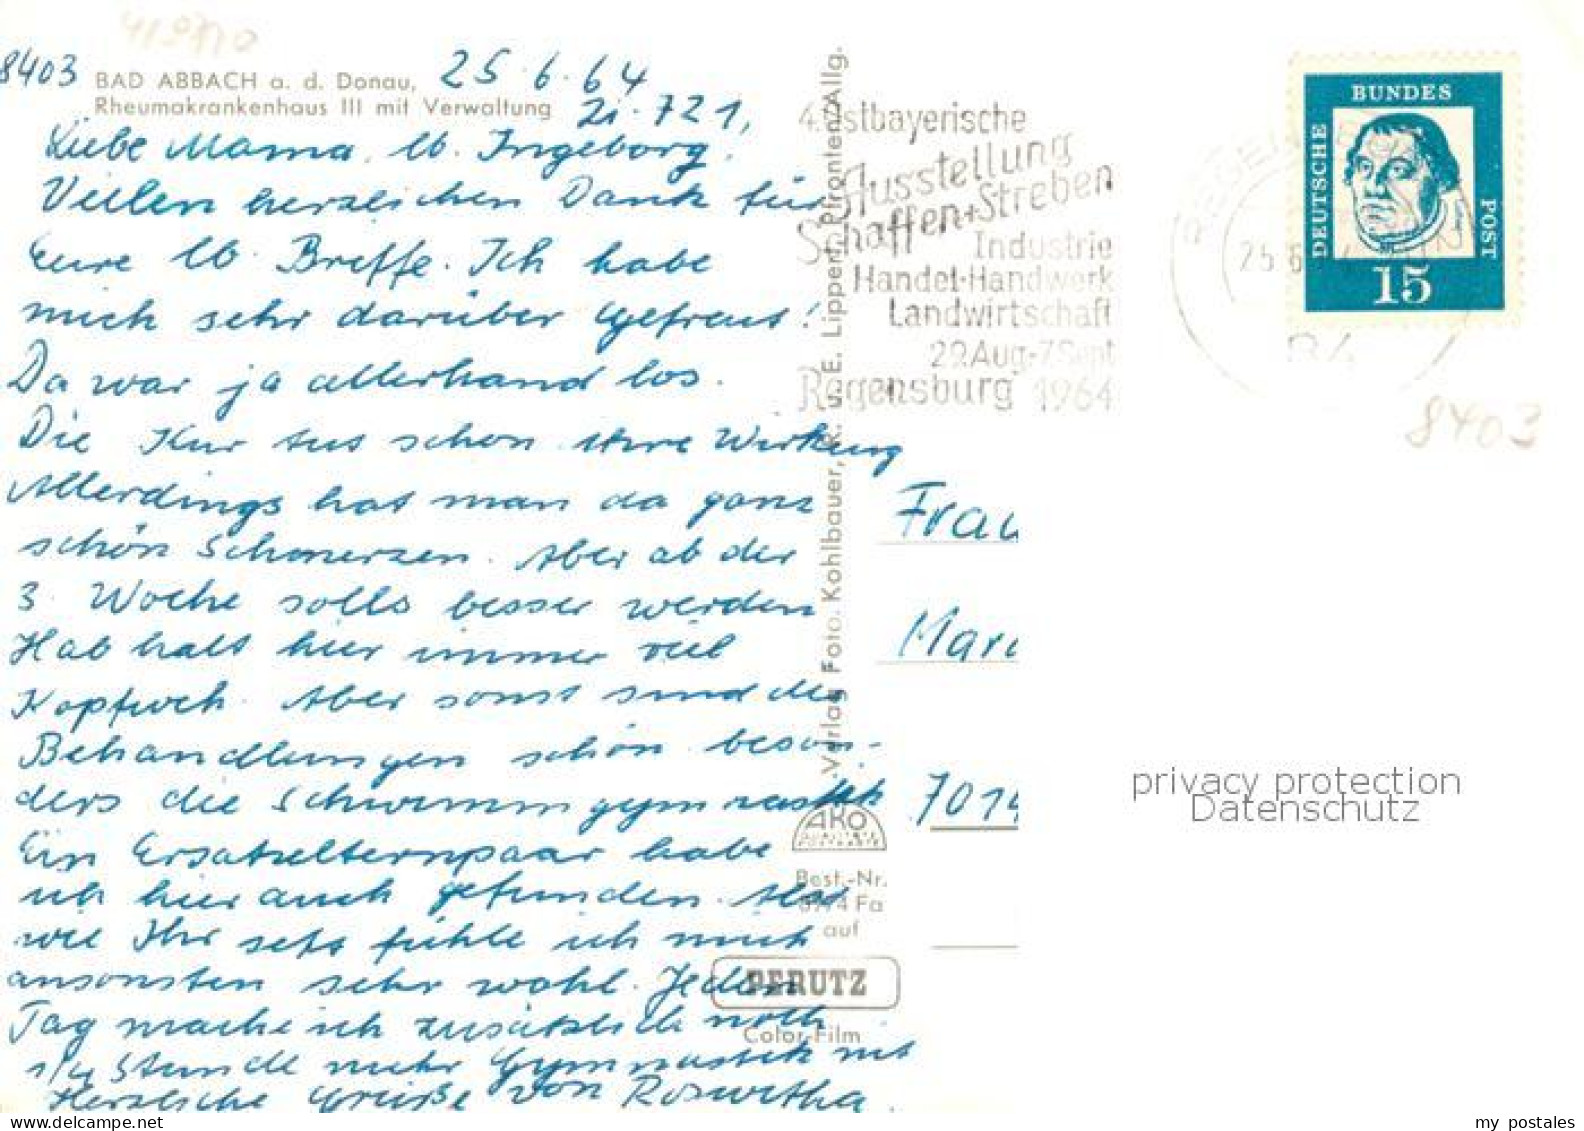 8403 BAD ABBACH a. d. Donau, 25.6.64
Rheumakrankenhaus III mit Verwaltung Zi. 721,
Liebe Mama, lb. Ingeborg,
Vielen herzlichen Dank für
Eure lb. Briefe. Ich habe
mich sehr darüber gefreut!
Da war ja allerhand los.
Die Kur tut schon ihre Wirkung
Allerdings hat man da ganz
schön Schmerzen. Aber ab der
3. Woche solls besser werden
Hab halt hier immer viel
Kopfweh. Aber sonst sind die
Behandlungen schön beson-
ders die Schwimmgymnastik
Ein Ersatzelternpaar habe
ich hier auch gefunden. Also
wie Ihr seht fühle ich mich
ansonsten sehr wohl. Jeden
Tag mache ich zusätzlich noch
1/4 Stunde mehr Gymnastik mit
Herzliche Grüße von Roswitha.
Verlag Foto. Kohlbauer, R. u. E. Lippert, Pfronten/Allg.
AKO
QUALITÄTS
POSTKARTE
Best.-Nr.
Fa
auf
PERUTZ
Color-Film
4. Ostbayerische
Ausstellung
Schaffen+Streben
Industrie
Handel-Handwerk
Landwirtschaft
29.Aug-7.Sept
Regensburg 1964
REGENSBURG
25.6.
84
DEUTSCHE
BUNDES
POST
15
8403
Frau
Mari
7014
privacy protection
Datenschutz
my postales